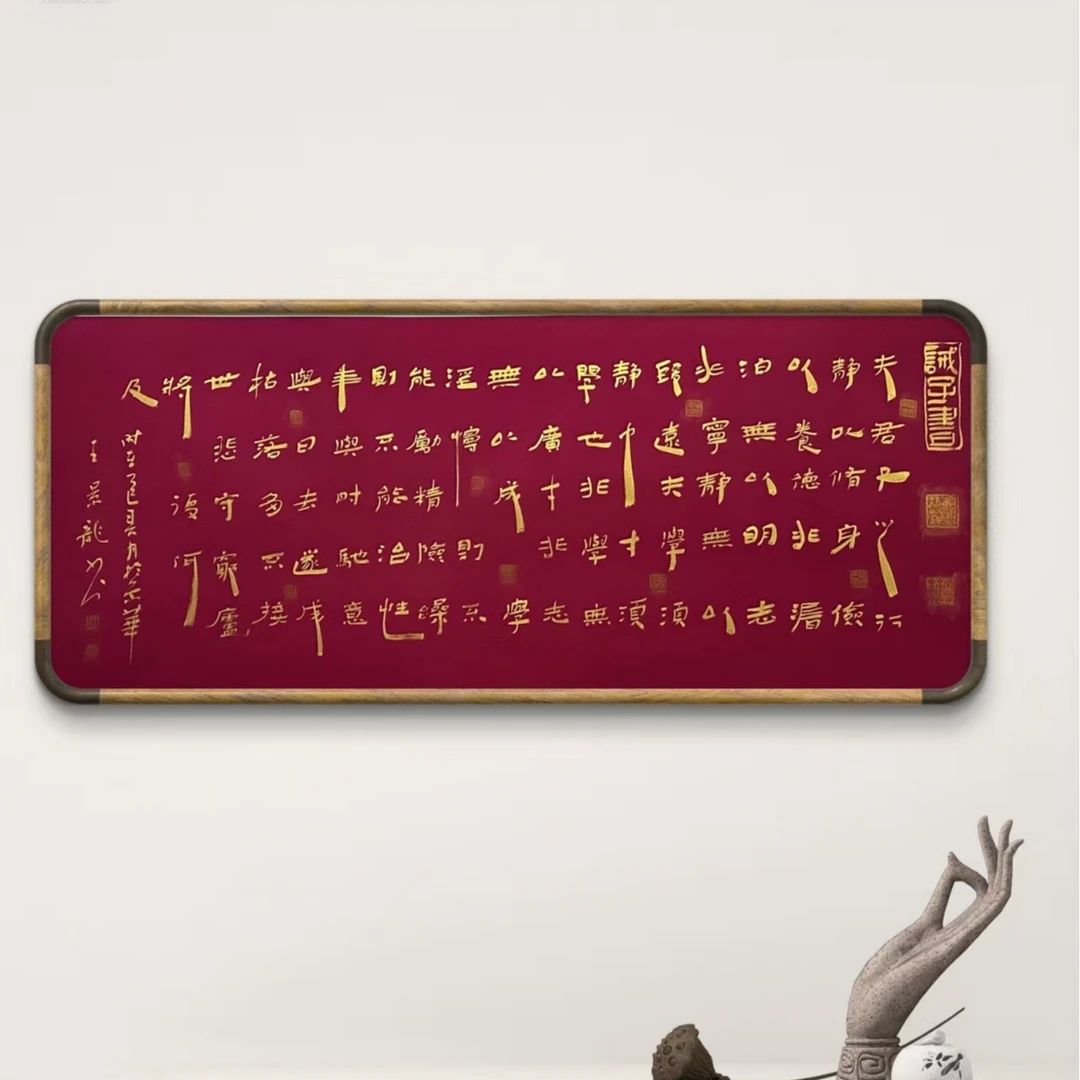 誡子書
夫君子之行
静以脩身儉
以養德非澹
泊無以明志
非寧静無以
致遠夫學須
静也才須
學也非學無
以廣才非志
無以成學
淫慢則不
能勵精險躁
則不能治性
年與時馳意
與日去遂成
枯落多不接
世悲守窮廬
將復何
及
時在 月於京華
王景龍